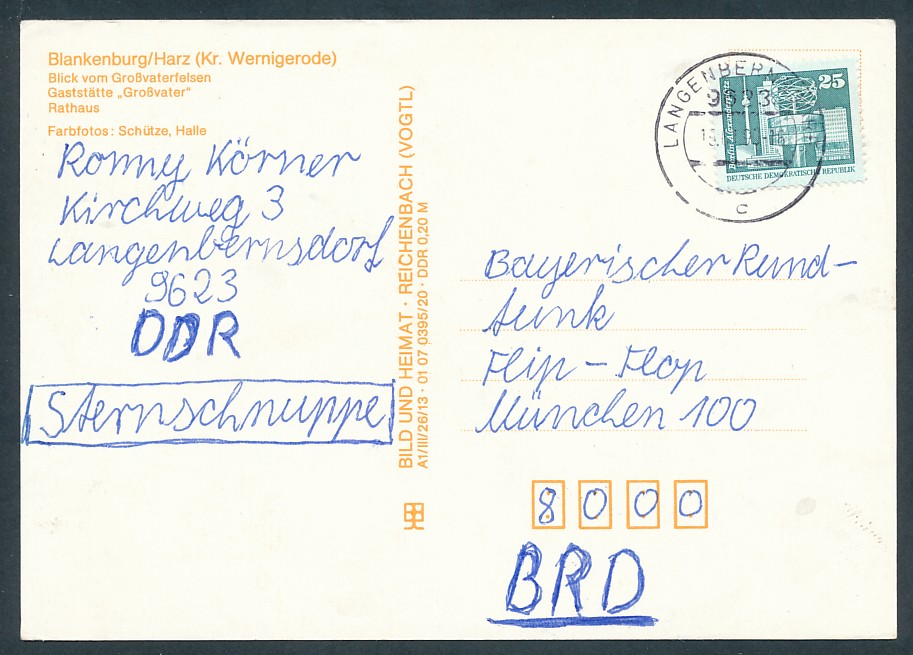 Blankenburg/Harz (Kr. Wernigerode)
Blick vom Großvaterfelsen
Gaststätte „Großvater“
Rathaus
Farbfotos: Schütze, Halle
Ronny Körner
Kirchweg 3
Langenbernsdorf
9623
DDR
Sternschnuppe
BILD UND HEIMAT · REICHENBACH (VOGTL)
A1/III/26/13 · 01 07 0395/20 · DDR 0,20 M
9623
c
25
DEUTSCHE DEMOKRATISCHE REPUBLIK
Bayerischer Rund-
funk
Flip - Flop
München 100
8000
BRD